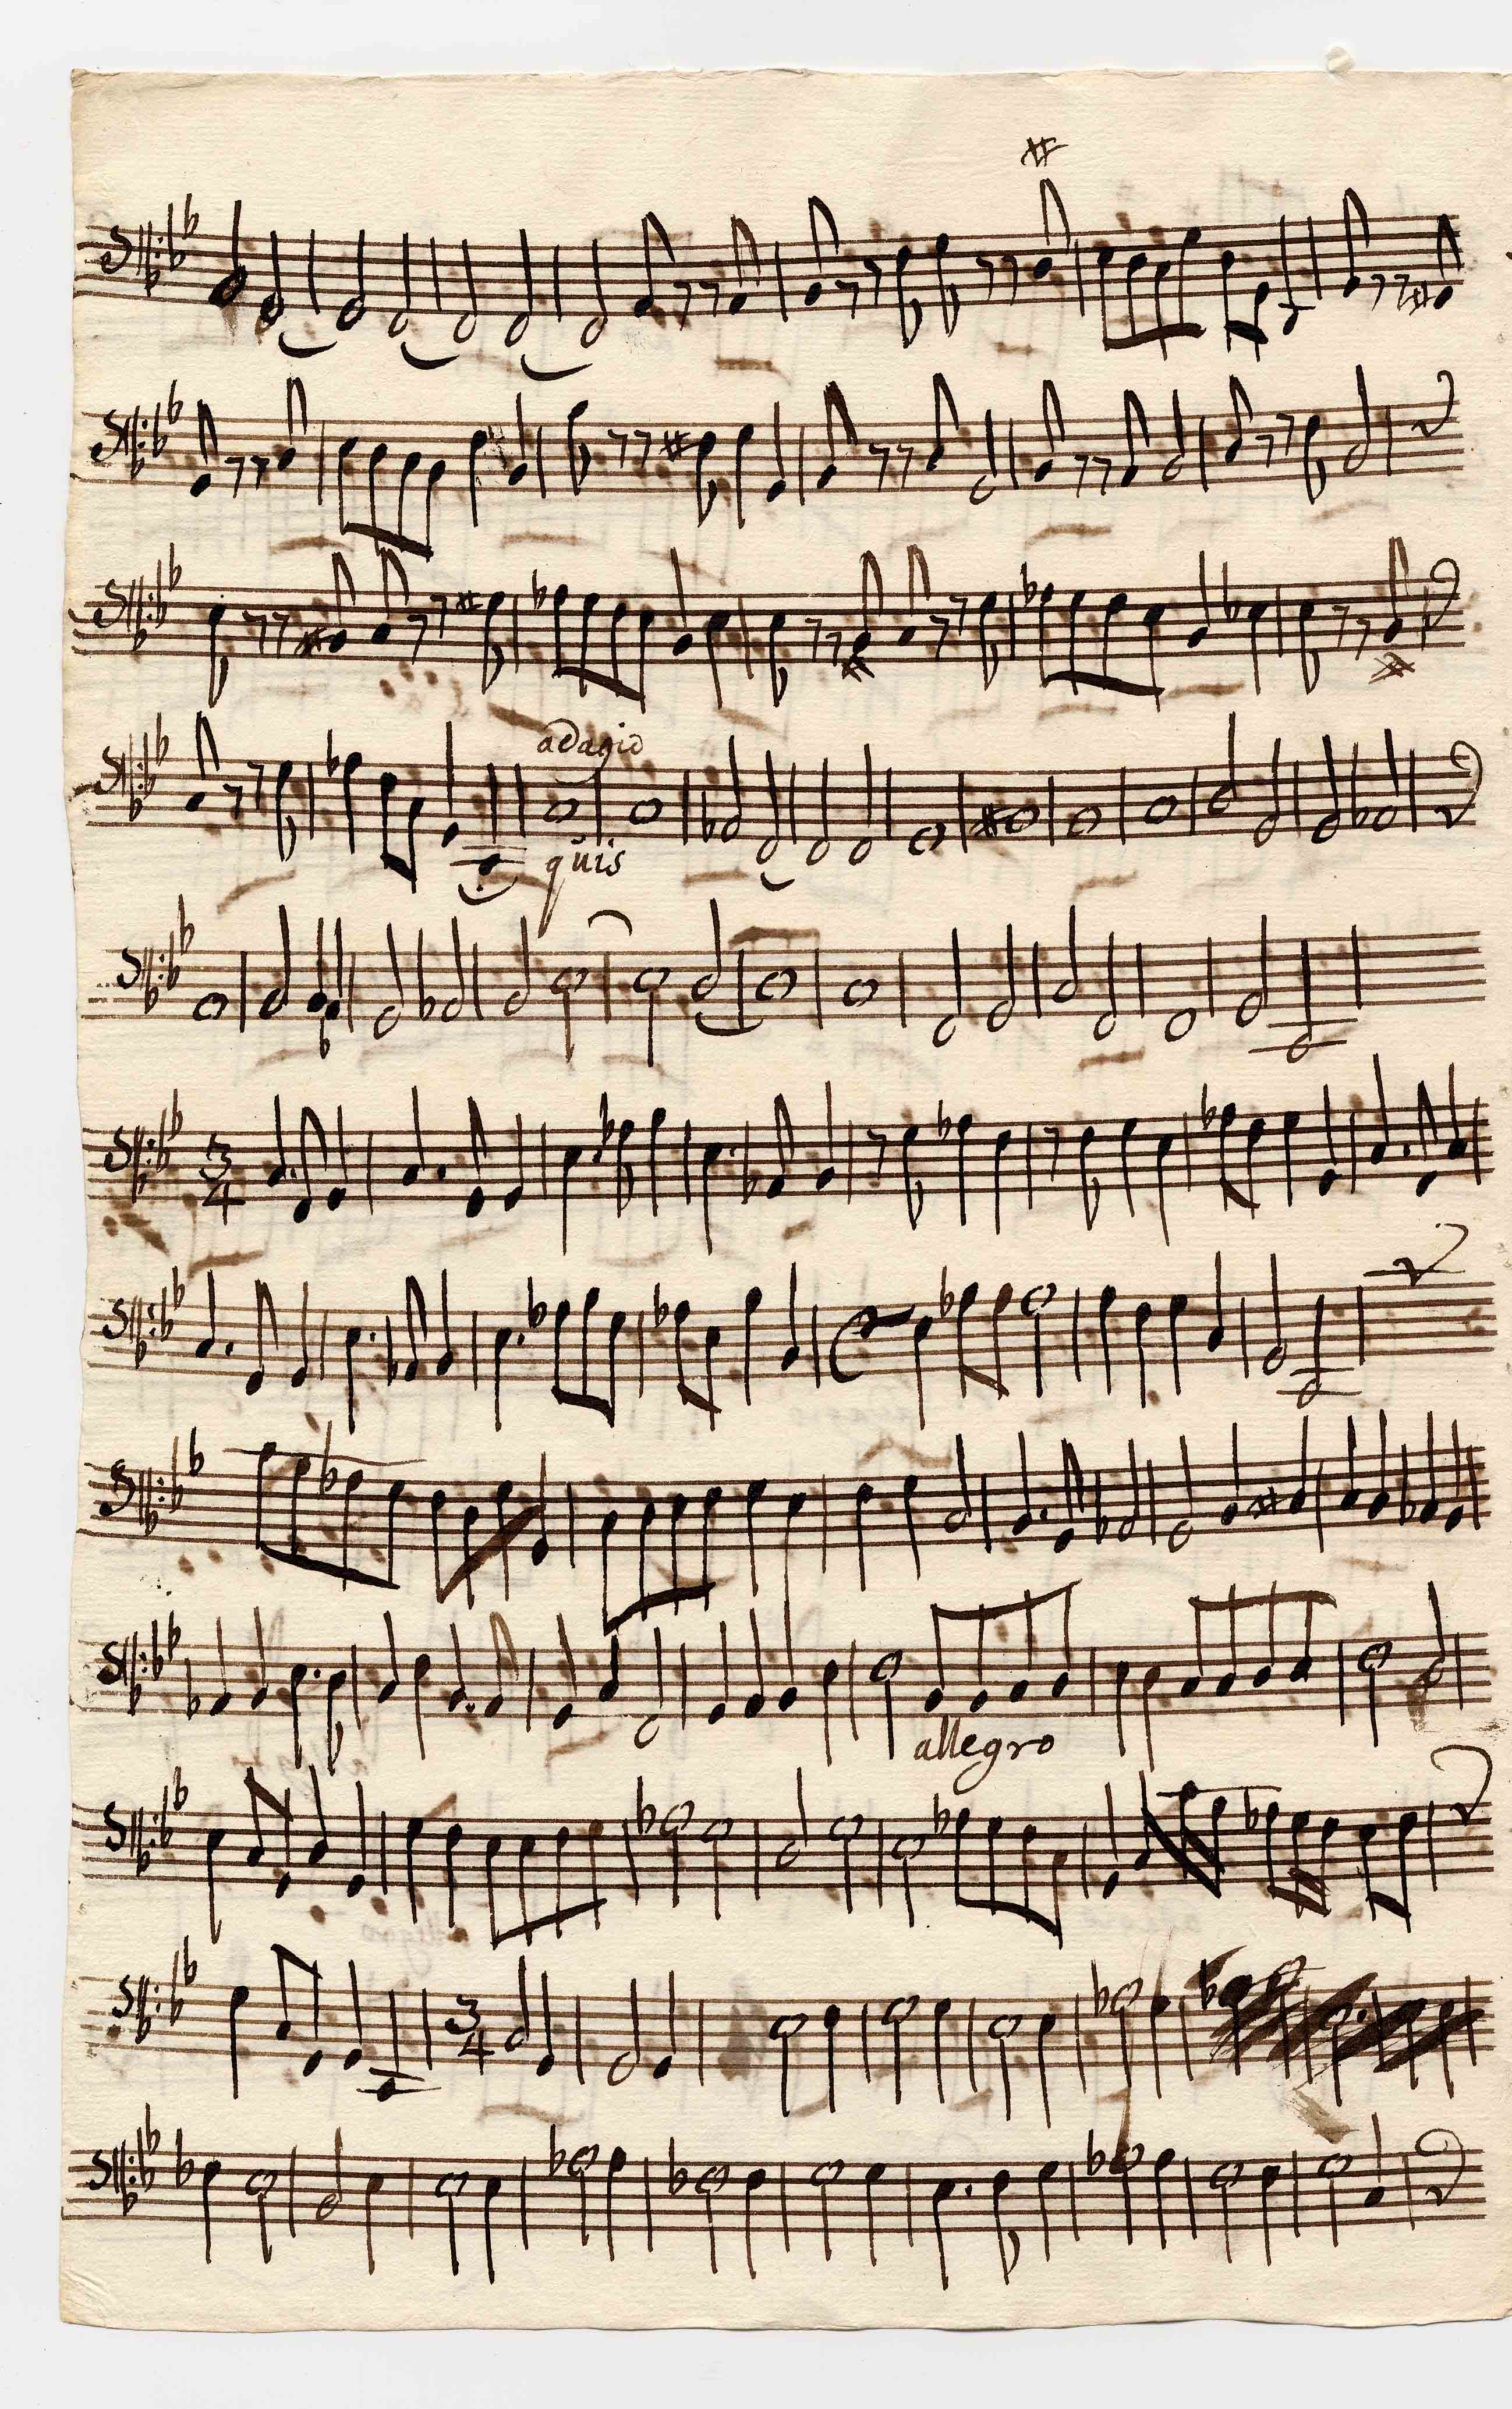 adagio
quis
3
4
allegro
3
4